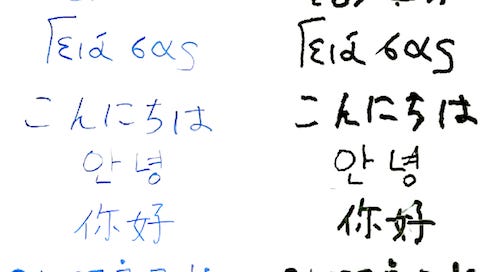 Γειά σας Γειά σας
こんにちは こんにちは
안녕 안녕
你好 你好